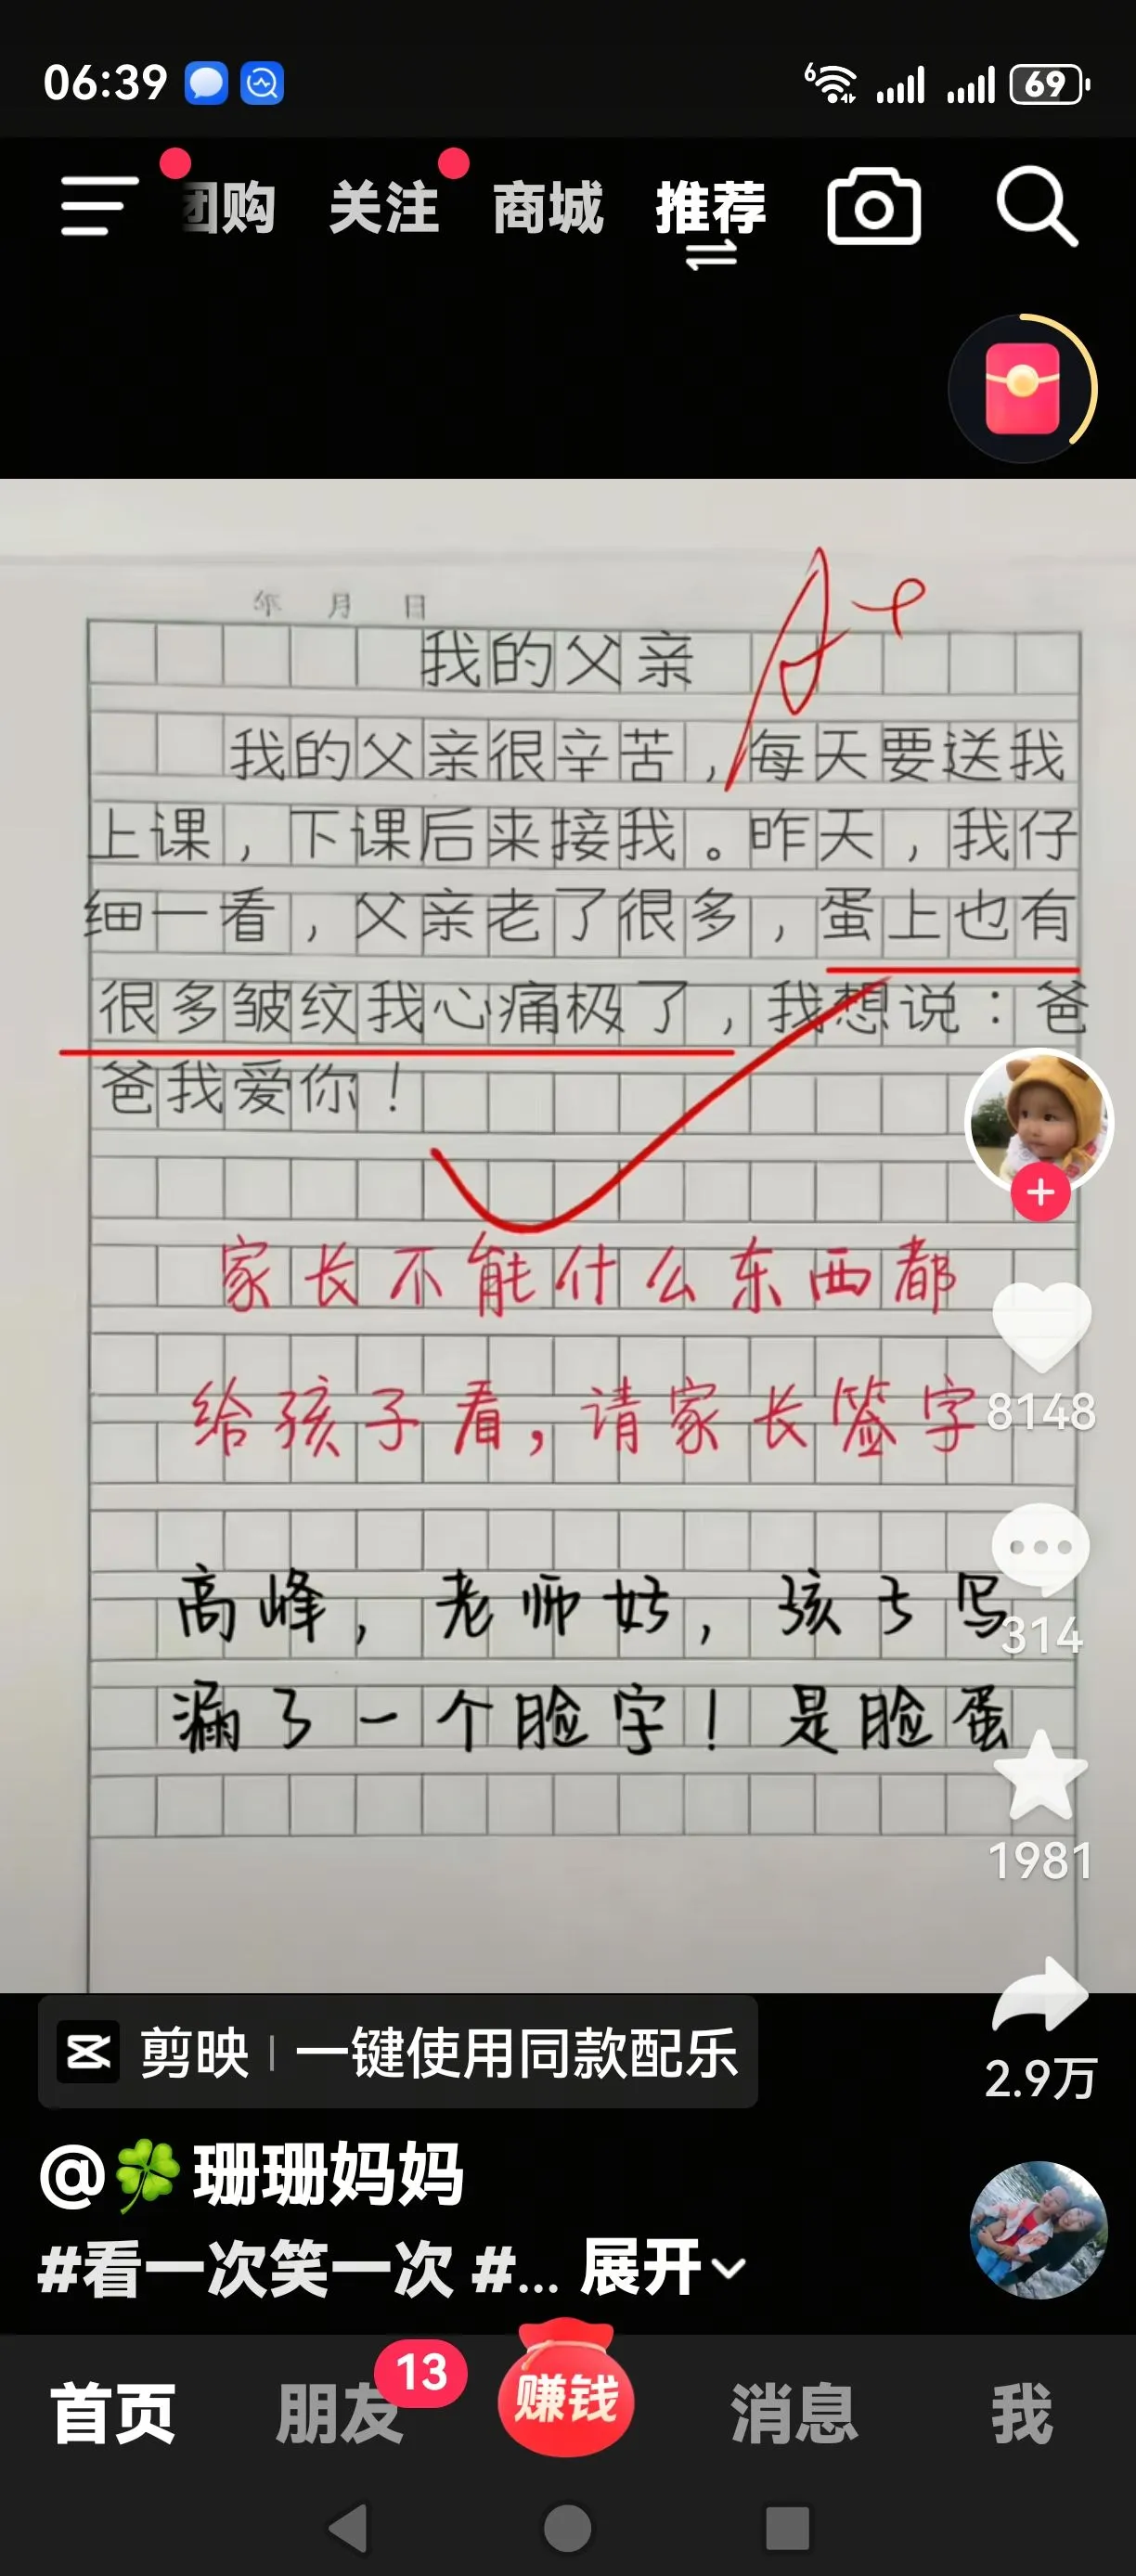 06:39
6
69
团购 关注 商城 推荐
年 月 日
我的父亲
A+
我的父亲很辛苦，每天要送我
上课，下课后来接我。昨天，我仔
细一看，父亲老了很多，蛋上也有
很多皱纹我心痛极了，我想说：爸
爸我爱你！
家长不能什么东西都
给孩子看，请家长签字
8148
高峰，老师好，孩子写
314
漏了一个脸字！是脸蛋
1981
2.9万
剪映 | 一键使用同款配乐
@🍀珊珊妈妈
#看一次笑一次 #... 展开
首页 朋友 13 赚钱 消息 我